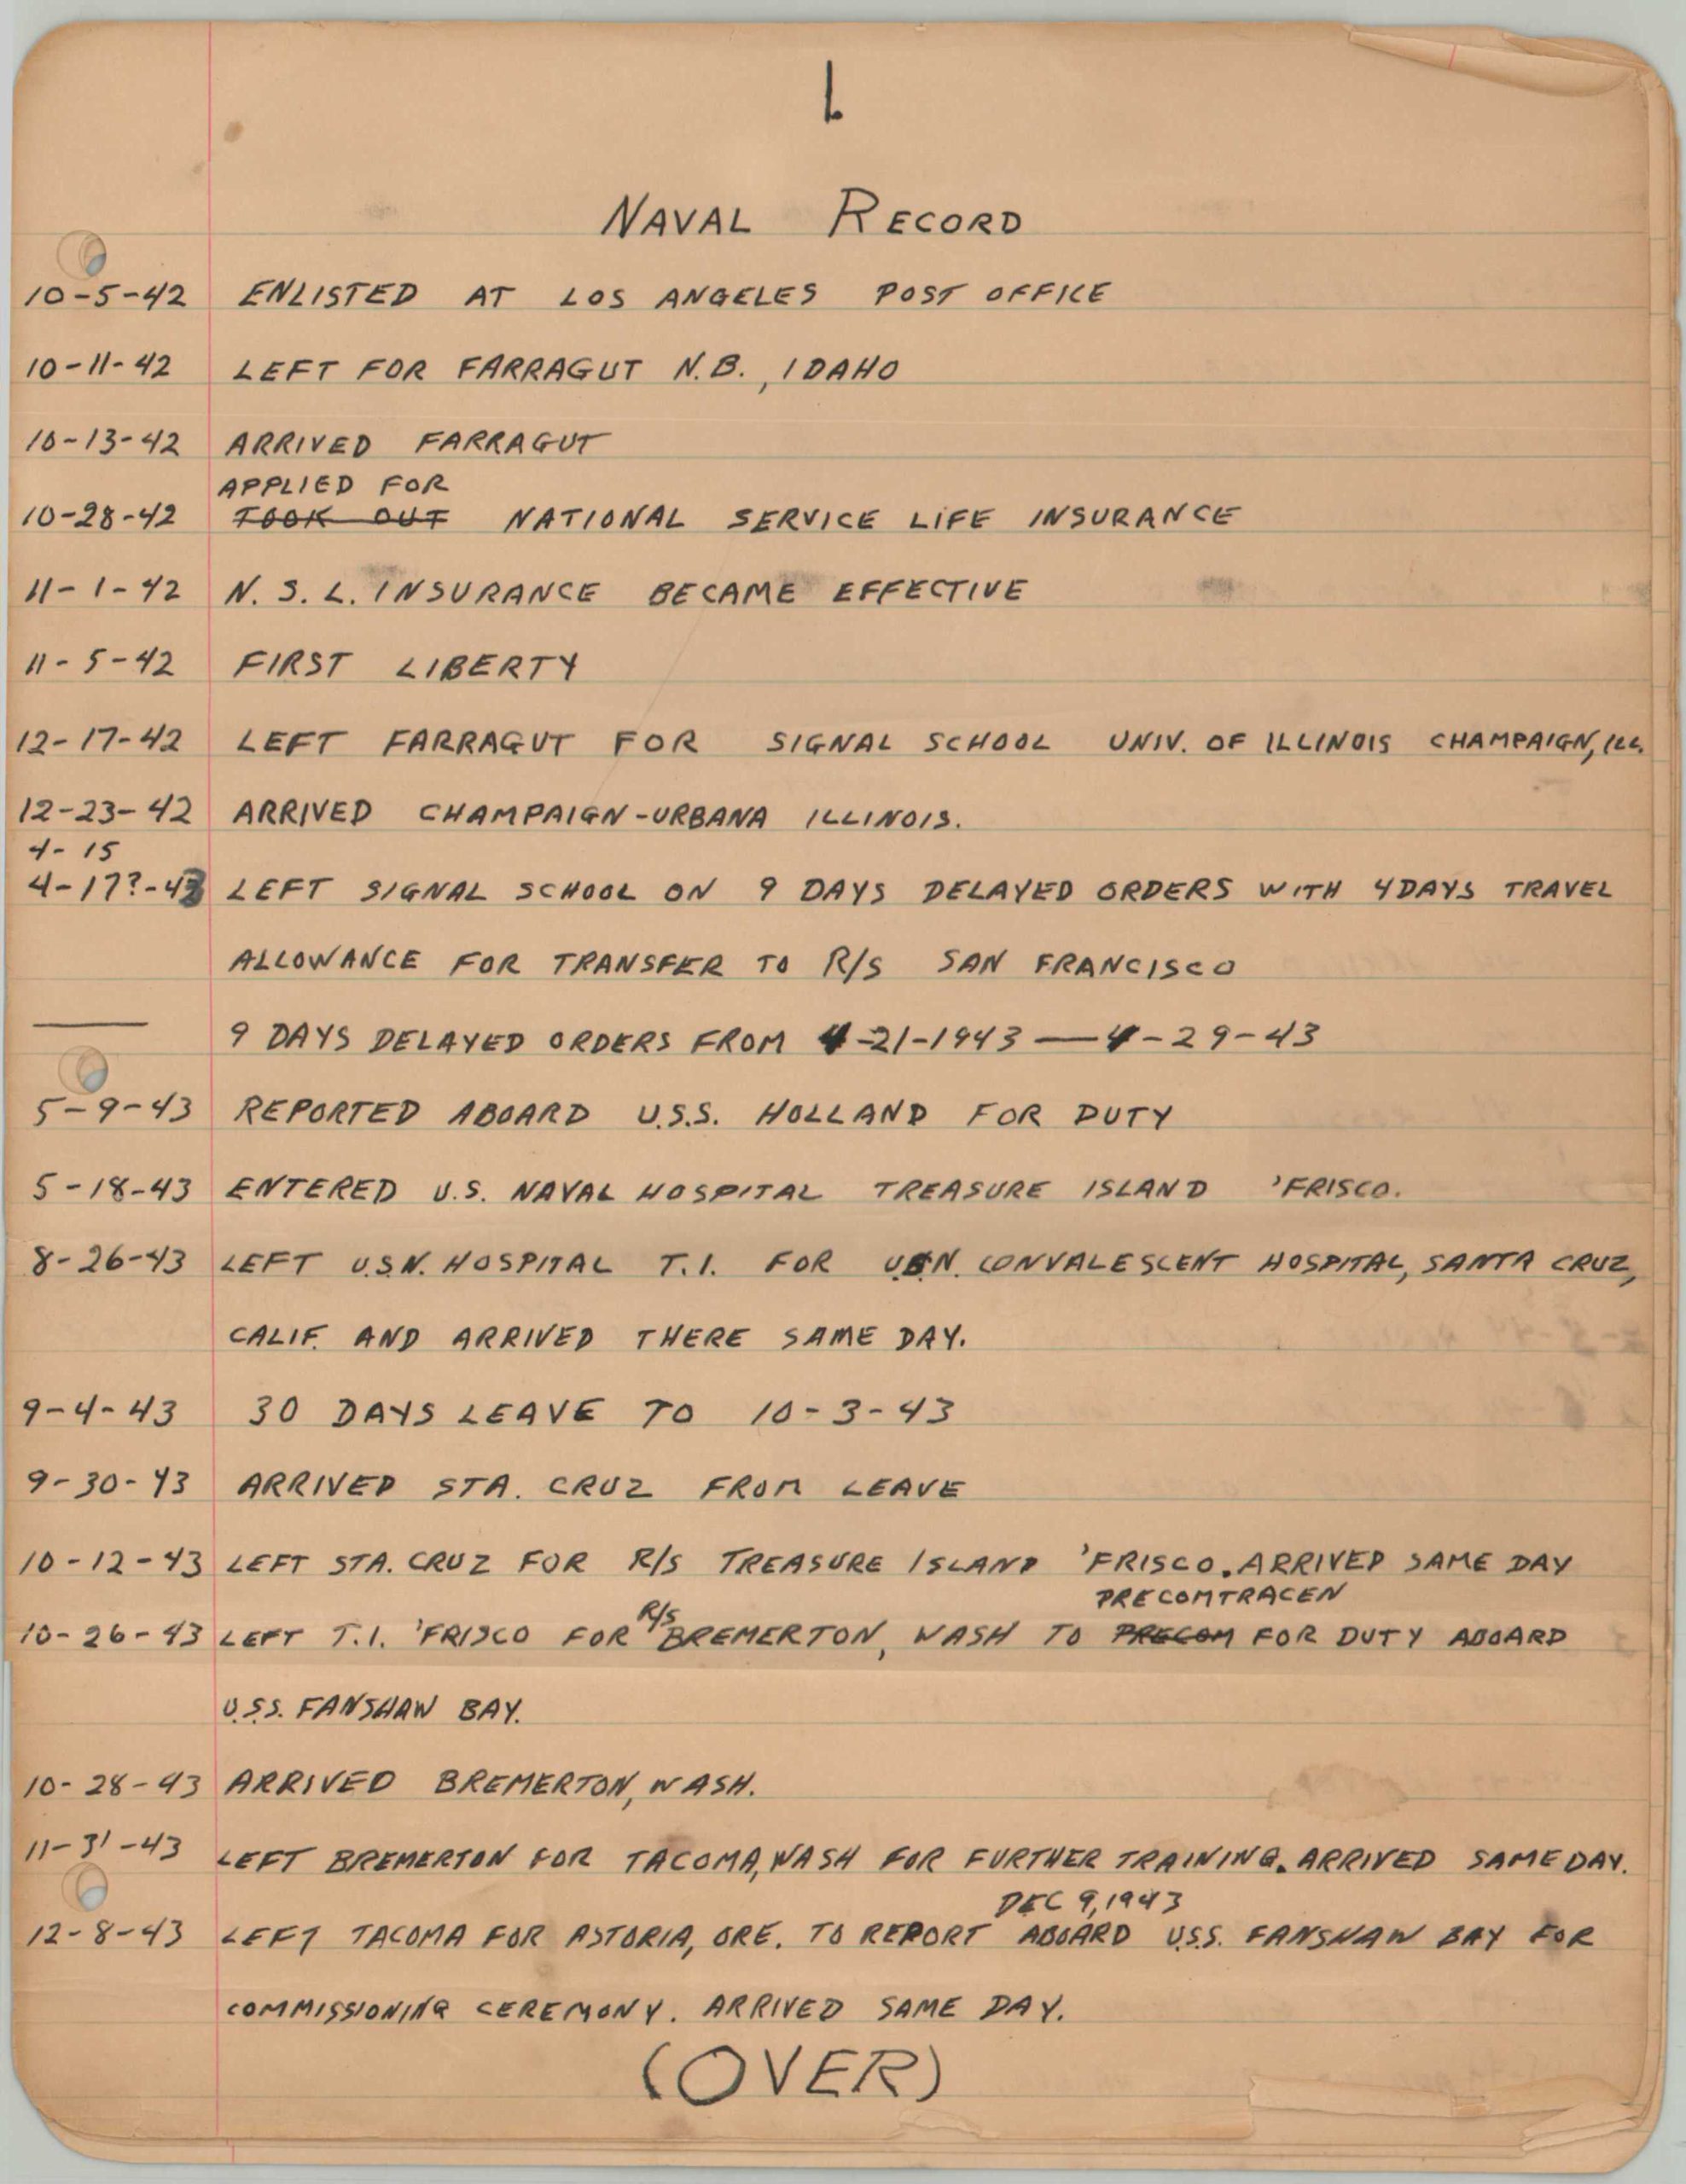 1.
NAVAL RECORD
10-5-42 ENLISTED AT LOS ANGELES POST OFFICE
10-11-42 LEFT FOR FARRAGUT N.B., IDAHO
10-13-42 ARRIVED FARRAGUT
APPLIED FOR
10-28-42 TOOK OUT NATIONAL SERVICE LIFE INSURANCE
11-1-42 N. S. L. INSURANCE BECAME EFFECTIVE
11-5-42 FIRST LIBERTY
12-17-42 LEFT FARRAGUT FOR SIGNAL SCHOOL UNIV. OF ILLINOIS CHAMPAIGN, ILL.
12-23-42 ARRIVED CHAMPAIGN-URBANA ILLINOIS.
4-15
4-17?-43 LEFT SIGNAL SCHOOL ON 9 DAYS DELAYED ORDERS WITH 4 DAYS TRAVEL
ALLOWANCE FOR TRANSFER TO R/S SAN FRANCISCO
— 9 DAYS DELAYED ORDERS FROM 4-21-1943 — 4-29-43
5-9-43 REPORTED ABOARD U.S.S. HOLLAND FOR DUTY
5-18-43 ENTERED U.S. NAVAL HOSPITAL TREASURE ISLAND 'FRISCO.
8-26-43 LEFT U.S.N. HOSPITAL T.I. FOR U.S.N. CONVALESCENT HOSPITAL, SANTA CRUZ,
CALIF. AND ARRIVED THERE SAME DAY.
9-4-43 30 DAYS LEAVE TO 10-3-43
9-30-43 ARRIVED STA. CRUZ FROM LEAVE
10-12-43 LEFT STA. CRUZ FOR R/S TREASURE ISLAND 'FRISCO. ARRIVED SAME DAY
PRECOMTRACEN
10-26-43 LEFT T.I. 'FRISCO FOR R/S BREMERTON, WASH TO PRECOM FOR DUTY ABOARD
U.S.S. FANSHAW BAY.
10-28-43 ARRIVED BREMERTON, WASH.
11-31-43 LEFT BREMERTON FOR TACOMA, WASH FOR FURTHER TRAINING. ARRIVED SAME DAY.
DEC 9, 1943
12-8-43 LEFT TACOMA FOR ASTORIA, ORE. TO REPORT ABOARD U.S.S. FANSHAW BAY FOR
COMMISSIONING CEREMONY. ARRIVED SAME DAY.
(OVER)